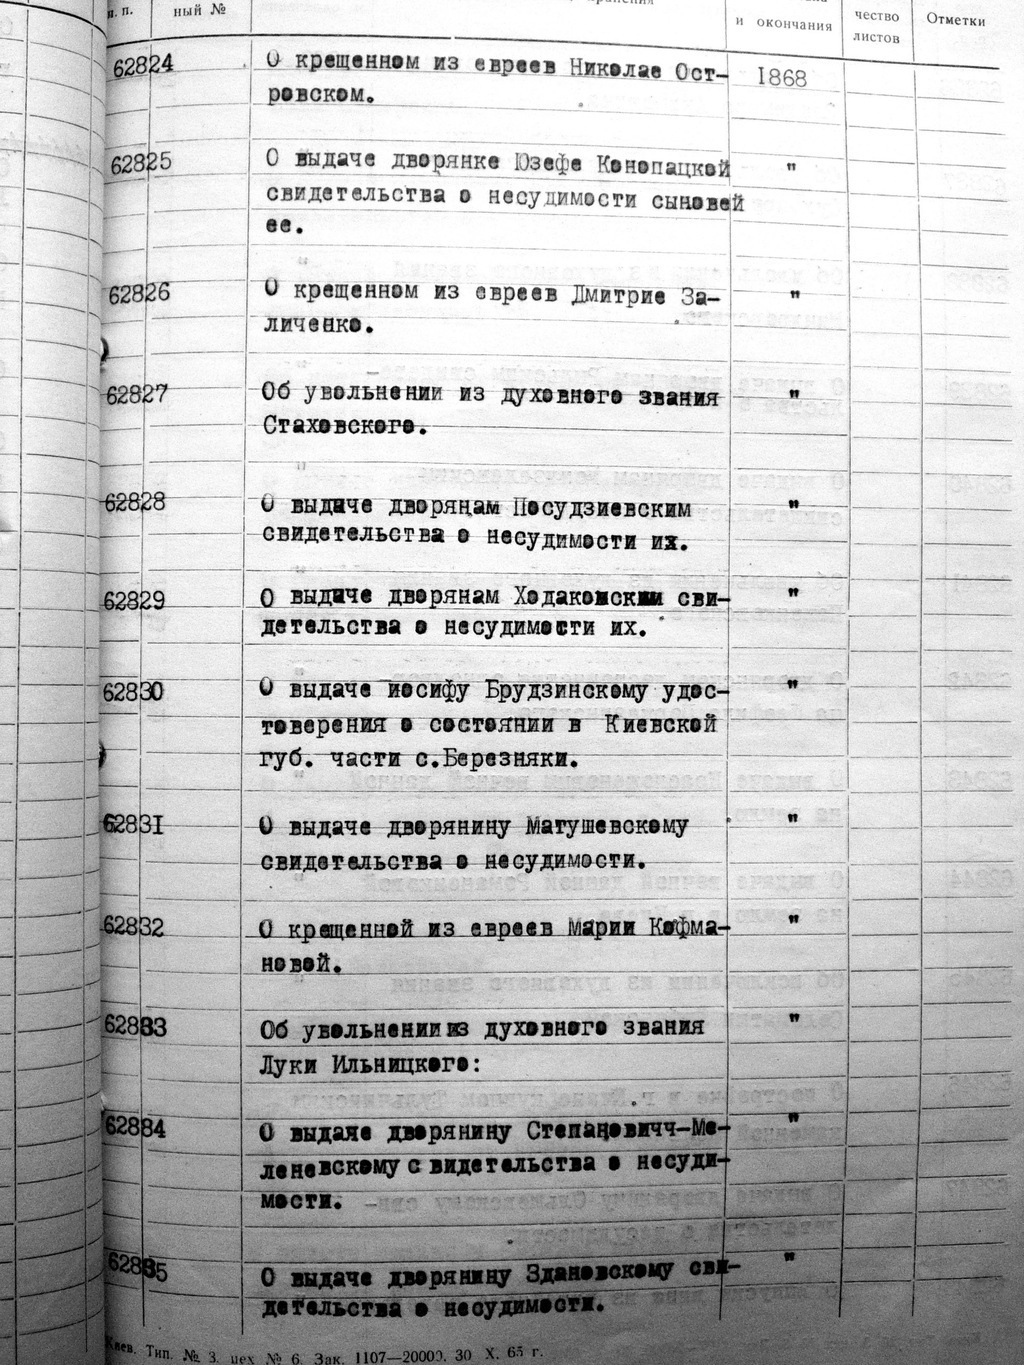 п. п. ный № и окончания чество листов Отметки
62824 О крещенном из евреев Николае Ост- 1868
ровском.
62825 О выдаче дворянке Юзефе Конопацкой "
свидетельства о несудимости сыновей
ее.
62826 О крещенном из евреев Дмитрие За- "
личенко.
62827 Об увольнении из духовного звания "
Стаховского.
62828 О выдаче дворянам Посудзиевским "
свидетельства о несудимости их.
62829 О выдаче дворянам Ходаковским сви- "
детельства о несудимости их.
62830 О выдаче иосифу Брудзинскому удос- "
товерения о состоянии в Киевской
губ. части с.Березняки.
62831 О выдаче дворянину Матушевскому "
свидетельства о несудимости.
62832 О крещенной из евреев Марии Кофма- "
новой.
62833 Об увольнении из духовного звания "
Луки Ильницкого:
62834 О выдале дворянину Степановичч-Ме- "
леневскому свидетельства о несуди-
мости.
62835 О выдаче дворянину Здановскому сви- "
детельства о несудимости.
Киев. Тип. № 3. цех № 6. Зак. 1107—20000. 30 X. 65 г.